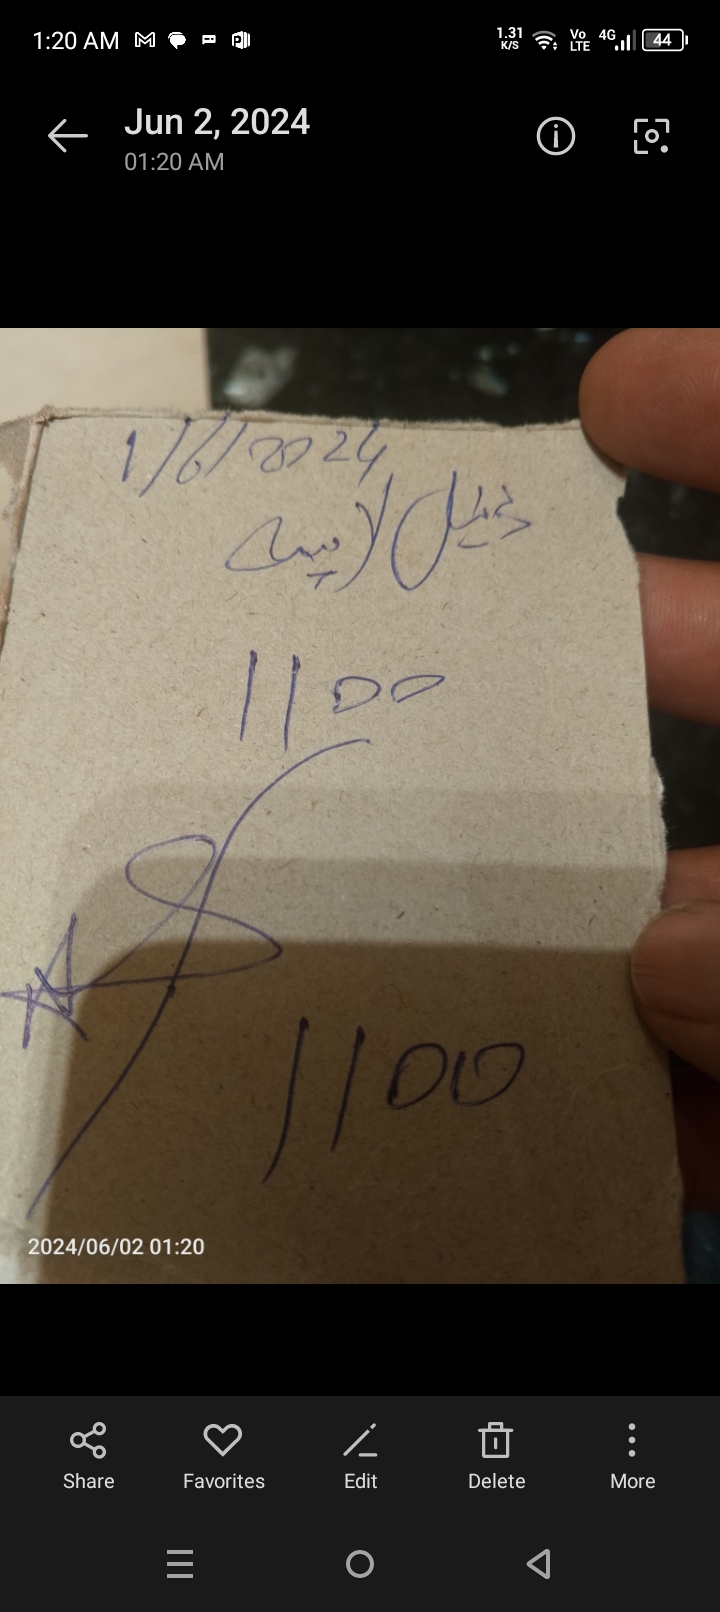 1:20 AM
1.31 K/S Vo LTE 4G 44
Jun 2, 2024
01:20 AM
1/6/2024
1100
1100
2024/06/02 01:20
Share Favorites Edit Delete More